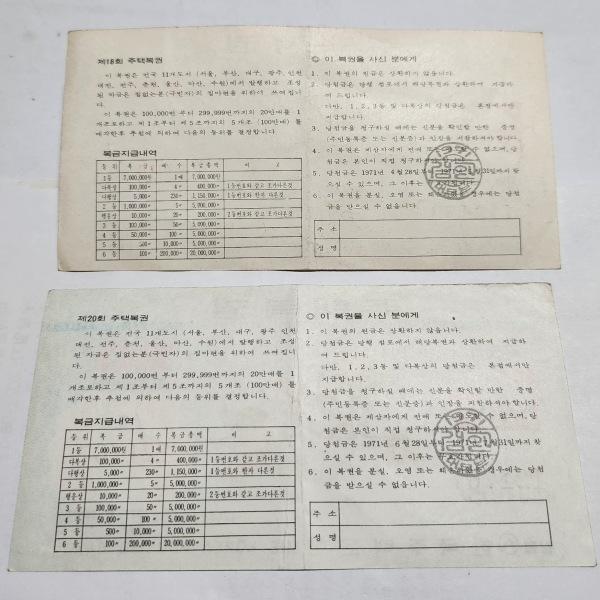 제18회 주택복권
이 복권은 전국 11개도시 (서울, 부산, 대구, 광주, 인천
대전, 전주, 춘천, 울산, 마산, 수원)에서 발행하고 조성
된 자금은 집없는분(국민자)의 집마련을 위하여 쓰여집니
다.
이 복권은 100,000번 부터 299,999번까지의 20만매를 1
개조로하고 제1조부터 제5조까지의 5개조 (100만매) 를
매각한후 추첨에 의하여 다음의 등위를 결정합니다.
복금지급내역
등 위 복 금 매 수 복금총액 비 고
1등 7,000,000원 1매 7,000,000원
다복상 100,000〃 4〃 400,000〃 1등번호와 같고 조가다른것
다행상 5,000〃 230〃 1,150,000〃 1등번호와 한자 다른것
2 등 1,000,000〃 5〃 5,000,000〃
행운상 10,000〃 20〃 200,000〃 2등번호와 같고 조가다른것
3 등 100,000〃 50〃 5,000,000〃
4 등 50,000〃 100〃 5,000,000〃
5 등 500〃 10,000〃 5,000,000〃
6 등 100〃 200,000〃 20,000,000〃
◎ 이 복권을 사신 분에게
1. 이 복권의 원금은 상환하지 않습니다.
2. 당첨금은 당행 점포에서 해당복권과 상환하여 지급하
여 드립니다.
다만, 1,2,3등 및 다복상의 당첨금은 본점에서만
지급합니다.
3. 당첨금을 청구하실 때에는 신분을 확인할 만한 증명
(주민등록증 또는 신분증)과 인장을 지참하셔야합니다.
4. 이 복권은 제삼자에게 전매 또는 없으며, 당
첨금은 본인이 직접 청구하
5. 당첨금은 1971년 6월28일부터 1971년 31일까지 찾
으실 수 있으며, 그 이후는
6. 이 복권을 분실, 오염 또는 경우에는 당첨
금을 받으실 수 없습니다.
주 소
성 명
제20회 주택복권
이 복권은 전국 11개도시 (서울, 부산, 대구, 광주 인천
대전, 전주, 춘천, 울산, 마산, 수원)에서 발행하고 조성
된 자금은 집없는분(국민자)의 집마련을 위하여 쓰여집니
다.
이 복권은 100,000번 부터 299,999번까지의 20만매 를
1개조로하고 제1조부터 제5조까지의 5개조 (100만매) 를
매각한후 추첨에 의하여 다음의 등위를 결정합니다.
복금지급내역
등 위 복 금 매 수 복금총액 비 고
1등 7,000,000원 1매 7,000,000원
다복상 100,000〃 4〃 400,000〃 1등번호와 같고 조가다른것
다행상 5,000〃 230〃 1,150,000〃 1등번호와 한자 다른것
2 등 1,000,000〃 5〃 5,000,000〃
행운상 10,000〃 20〃 200,000〃 2등번호와 같고 조가다른것
3 등 100,000〃 50〃 5,000,000〃
4 등 50,000〃 100〃 5,000,000〃
5 등 500〃 10,000〃 5,000,000〃
6 등 100〃 200,000〃 20,000,000〃
◎ 이 복권을 사신 분에게
1. 이 복권의 원금은 상환하지 않습니다.
2. 당첨금은 당행 점포에서 해당복권과 상환하여 지급하
여 드립니다.
다만, 1,2,3등 및 다복상의 당첨금은 본점에서만
지급합니다.
3. 당첨금을 청구하실 때에는 신분을 확인할 만한 증명
(주민등록증 또는 신분증)과 인장을 지참하셔야합니다.
4. 이 복권은 제삼자에게 전매 또는 없으며, 당
첨금은 본인이 직접 청구하셔야 합니다.
5. 당첨금은 1971년 6월28일부터 1971년 31일까지 찾
으실 수 있으며, 그 이후는
6. 이 복권을 분실, 오염 또는 경우에는 당첨
금을 받으실 수 없습니다.
주 소
성 명